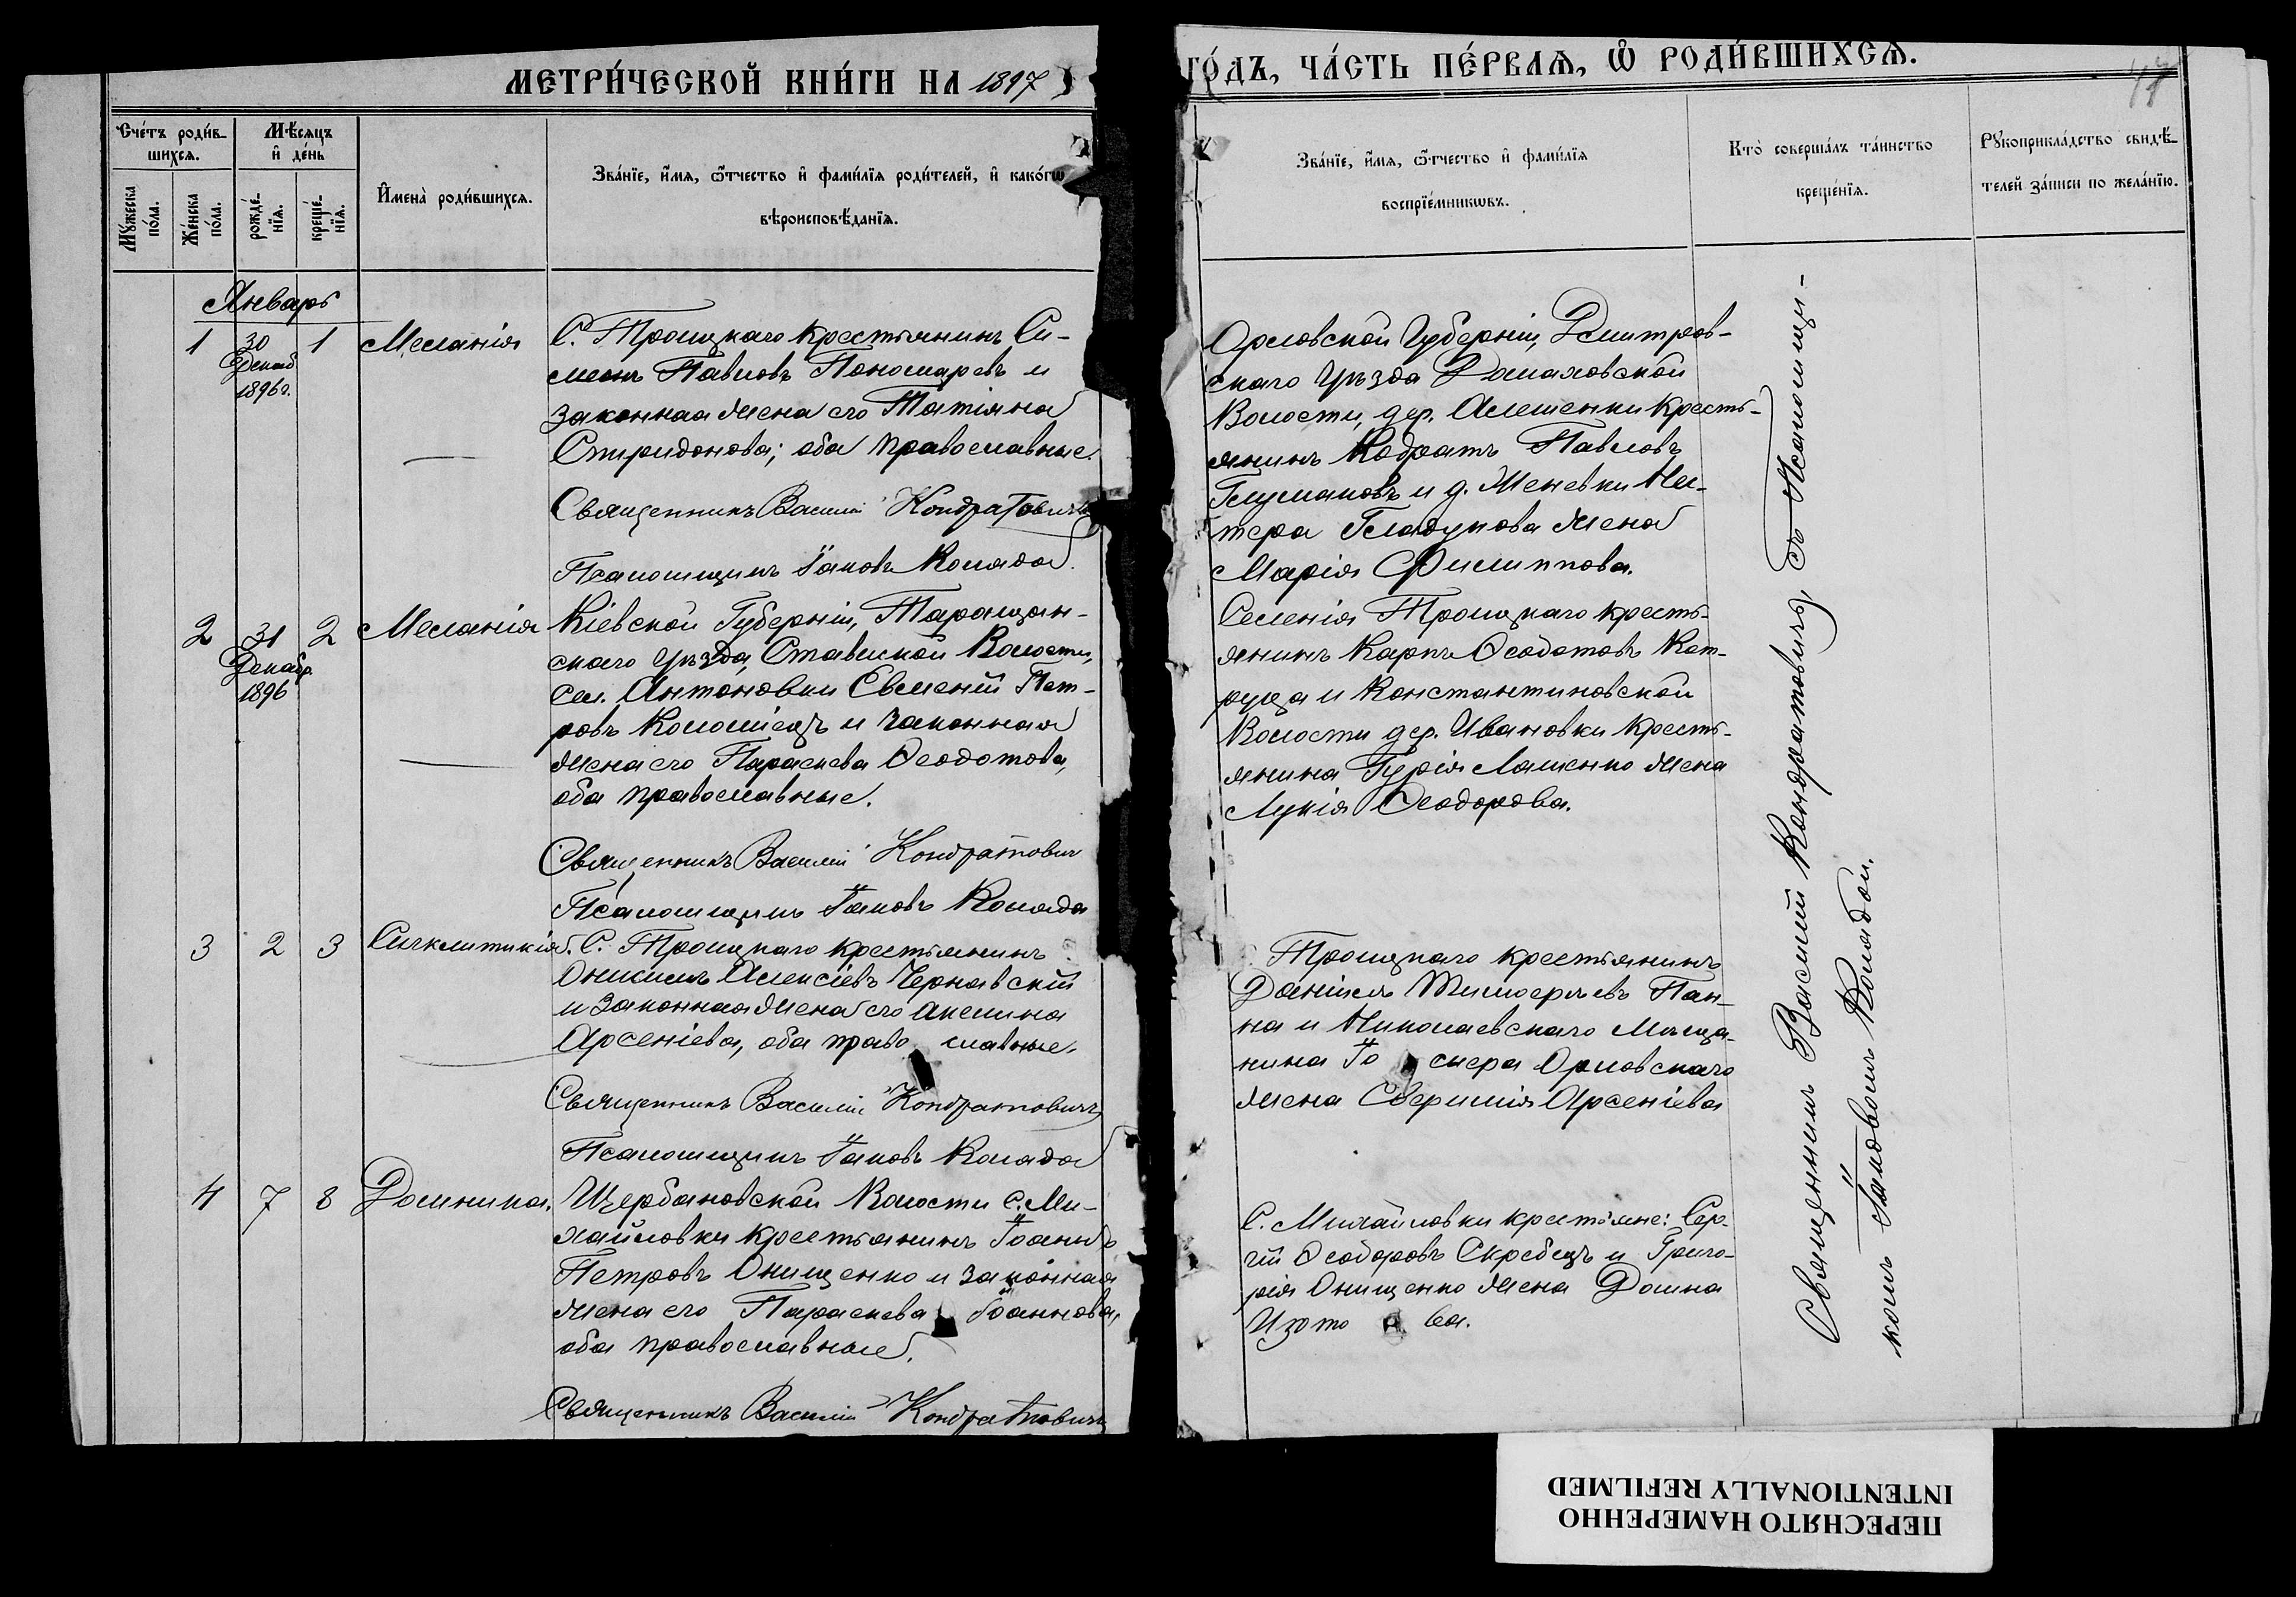 МЕТРИ́ЧЕСКОЙ КНИ́ГИ НА 1897
ГО́ДЪ, ЧА́СТЬ ПЕ́РВАѦ, Ѡ҆ РОДИ́ВШИХСѦ.
Сче́тъ роди́в-
шихсѧ.
Мѣ́сѧцъ
и҆ де́нь
Мꙋ́жеска
по́ла.
Же́нска
по́ла.
рожде́-
нїѧ.
креще́-
нїѧ.
И҆мена̀ роди́вшихсѧ.
Зва́нїе, и҆́мѧ, ѻ҆́тчество и҆ фами́лїѧ роди́телей, и҆ како́гѡ
вѣроисповѣ́данїѧ.
Зва́нїе, и҆́мѧ, ѻ҆́тчество и҆ фами́лїѧ
воспрїе́мникѡвъ.
Кто̀ соверша́лъ та́инство
креще́нїѧ.
Рꙋкоприкла́дство свидѣ́-
телей за́писи по жела́нїю.
Январь
1 30 1 Меланія
Декаб
1896 г.
С. Троицкаго крестьянинъ Си-
меонъ Павловъ Пономаревъ и
законная жена его Татіяна
Спиридонова; оба православные.
Священникъ Василій Кондратовичъ
Псаломщикъ Іаковъ Коляда
Орловской Губерніи, Дмитров-
скаго Уѣзда Домаховской
Волости, дер. Алешенки кресть-
янинъ Кодратъ Павловъ
и д.
жена
Марія Филиппова.
2 31 2 Меланія
Декабр.
1896
Кіевской Губерніи, Таращан-
скаго Уѣзда, Ставиской Волости,
сел. Антоновки Евменій Пет-
ровъ Коломіецъ и законная
жена его Параскева Ѳеодотова,
оба православные.
Священникъ Василій Кондратовичъ
Псаломщикъ Іаковъ Коляда
Селенія Троицкаго кресть-
янинъ Карпъ Ѳеодотовъ Кот-
и Константиновской
Волости дер. Ивановки кресть-
янина Гурія Лашенко жена
Лукія Ѳеодорова.
3 2 3 Сигклитикія
С. Троицкаго крестьянинъ
Онисимъ Алексіевъ Чернавскій
и законная жена его Акилина
Арсеніева, оба православные.
Священникъ Василій Кондратовичъ
Псаломщикъ Іаковъ Коляда
Троицкаго крестьянинъ
Даніилъ Тимофеевъ Пан-
на и Николаевскаго Мѣща-
нина Іосифа Орловскаго
жена Евфимія Арсеніева
4 7 8 Домника.
Щербановской Волости с. Ми-
хайловки крестьянинъ Іоаннъ
Петровъ Онищенко и законная
жена его Параскева Іоаннова,
оба православные.
Священникъ Василій Кондратовичъ
С. Михайловки крестьяне: Сер-
гій Ѳеодоровъ Скребецъ и Григо-
рія Онищенко жена Домна
Изотова.
Священникъ Василій Кондратовичъ, съ Псаломщи-
комъ Іаковомъ Колядой.
ПЕРЕСНЯТО НАМЕРЕННО
INTENTIONALLY REFILMED